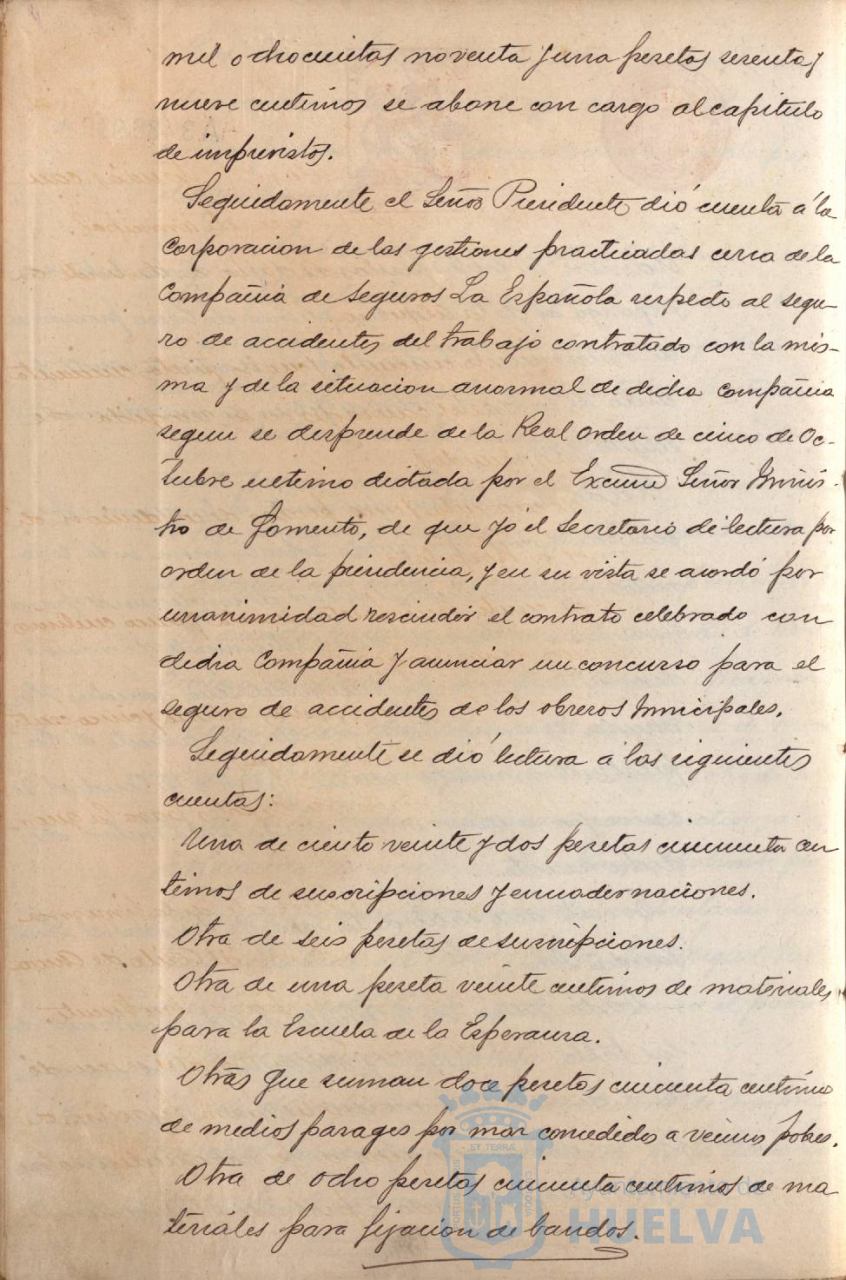 mil ochocientas noventa y una pesetas sesenta y
nueve centimos se abone con cargo al capitulo
de imprevistos.
Seguidamente el Señor Presidente dió cuenta á la
Corporacion de las gestiones practicadas cerca de la
Compañia de Seguros La Española respecto al segu-
ro de accidentes del trabajo contratado con la mis-
ma y de la situacion anormal de dicha Compañia
segun se desprende de la Real orden de cinco de Oc-
tubre ultimo dictada por el Excmo Señor Minis-
tro de Fomento, de que yo el Secretario di lectura por
orden de la presidencia, y en su vista se acordó por
unanimidad rescindir el contrato celebrado con
dicha Compañia y anunciar un concurso para el
seguro de accidentes de los obreros Municipales.
Seguidamente se dió lectura á las siguientes
cuentas:
Una de ciento veinte y dos pesetas cincuenta cen
timos de suscripciones y encuadernaciones.
Otra de seis pesetas de suscripciones.
Otra de una peseta veinte centimos de materiales
para la Escuela de la Esperanza.
Otras que suman doce pesetas cincuenta centimos
de medios pasages por mar concedidos a vecinos pobres.
Otra de ocho pesetas cincuenta centimos de ma
teriales para fijacion de bandos.
HUELVA